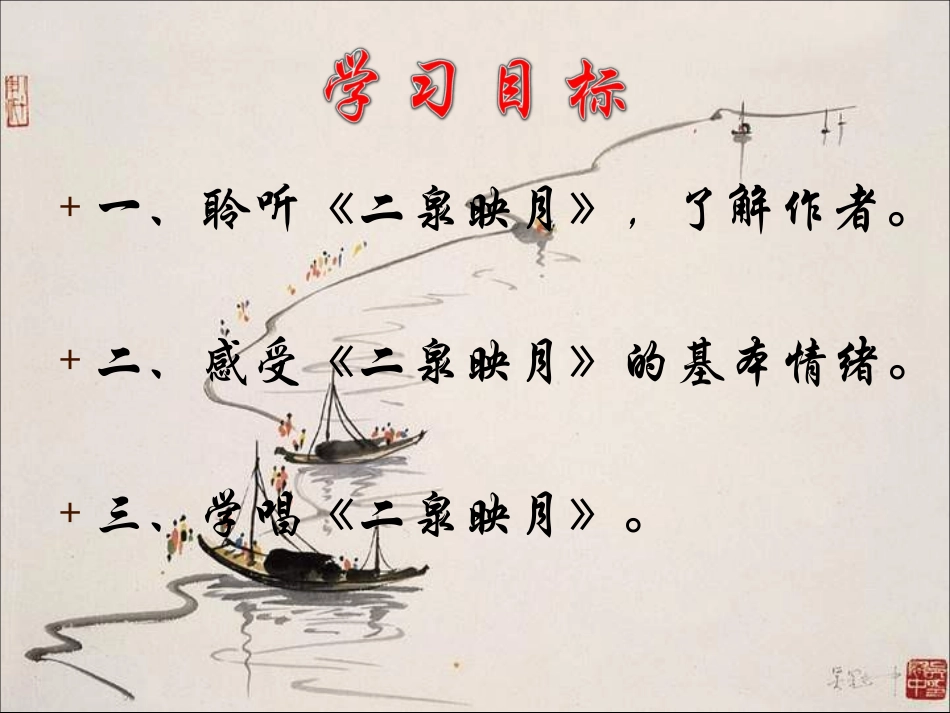 学习目标
+ 一、聆听《二泉映月》，了解作者。
+ 二、感受《二泉映月》的基本情绪。
+ 三、学唱《二泉映月》。